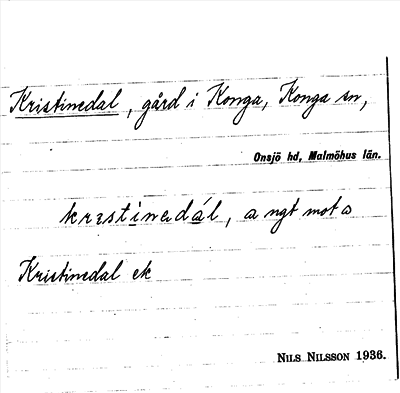 Kristinedal, gård i Konga, Konga sn,
Onsjö hd, Malmöhus län.
krɪstinədál, a ngt mot ɔ
Kristinedal ek
NILS NILSSON 1936.